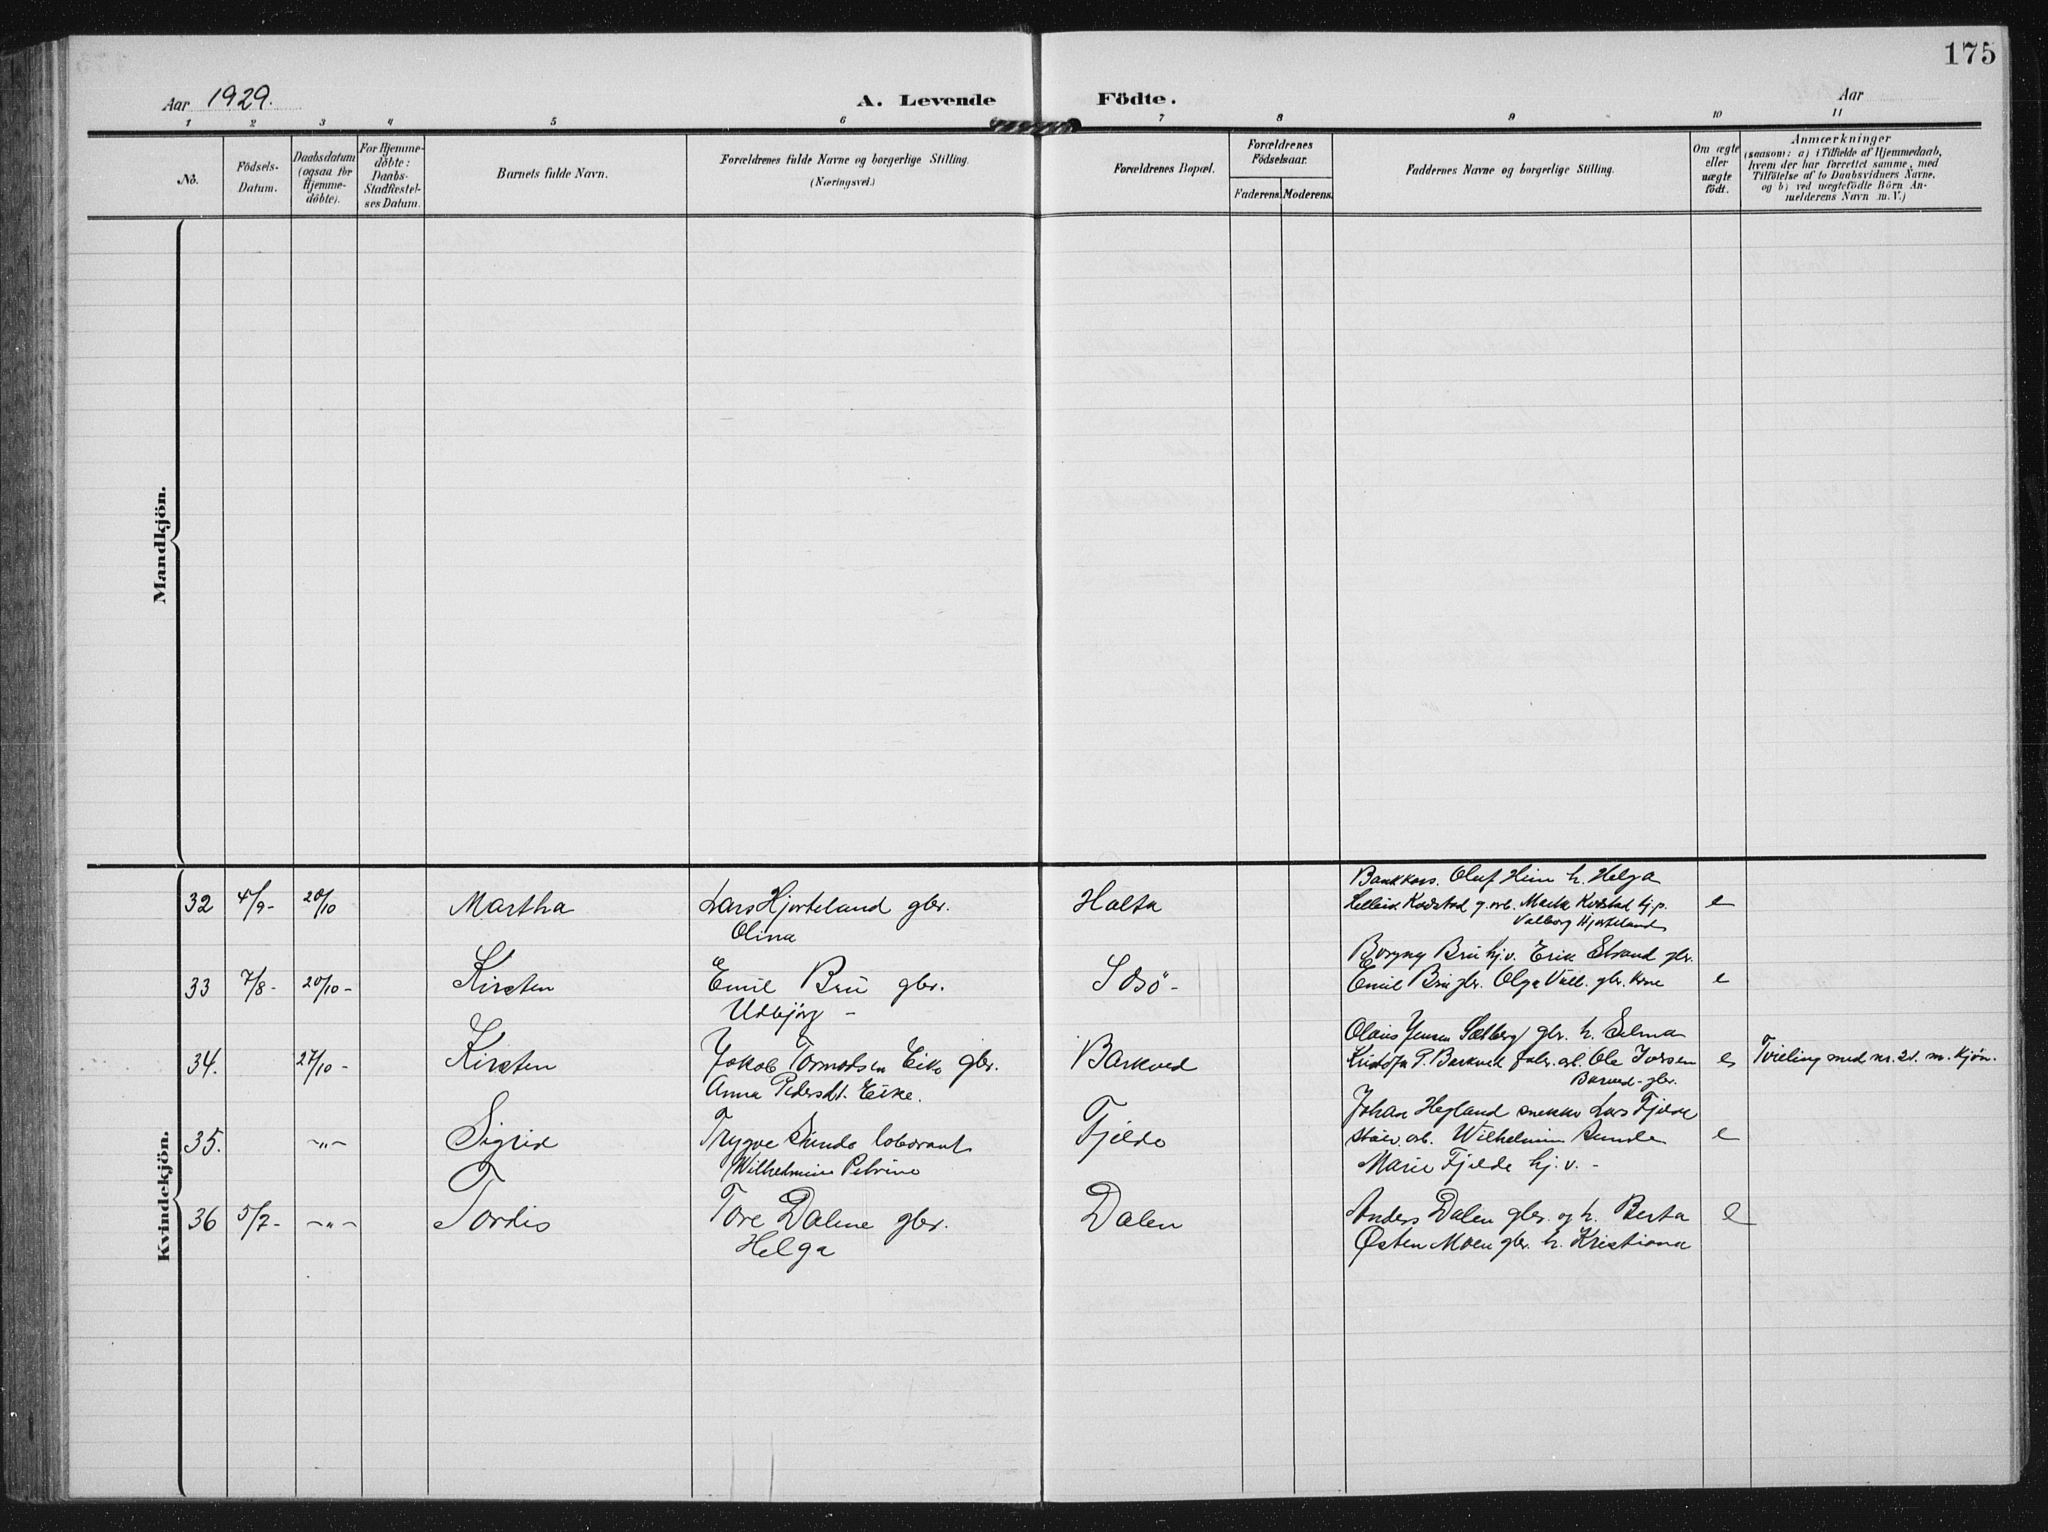 175
Aar 1929.
A. Levende Födte.
Aar
1 2 3 4 5 6 7 8 9 10 11
No.
Födsels-
Datum.
Daabsdatum
(ogsaa for
Hjemme-
döbte).
For Hjemme-
döbte:
Daabs-
Stadfæstel-
ses Datum.
Barnets fulde Navn.
Forældrenes fulde Navne og borgerlige Stilling.
(Næringsvei.)
Forældrenes Bopæl.
Forældrenes
Födselsaar.
Faderens. Moderens.
Faddernes Navne og borgerlige Stilling.
Om ægte
eller
uægte
födt.
Anmærkninger
(saasom: a) i Tilfælde af Hjemmedaab,
hvem der har forrettet samme, med
Tilföielse af to Daabsvidners Navne,
og b) ved uægtefödte Börn An-
melderens Navn m. V.)
Mandkjön.
Kvindekjön.
Oluf Heim h. Helga
32 4/9- 20/10 Martha Lars Hjorteland gbr. Halta e
Olina
Valborg Hjorteland
Borgny Bru hj.v. Erik Strand gbr.
33 7/8- 20/10- Kirsten Emil Bru gbr. Emil Bru gbr. Olga gbr. kone e
Udbjörg -
Olaus Jensen gbr. h. Selma
34. 27/10- Kirsten Jakob Tormodsen Eike gbr. Barkved P. Barkved fabr. arb. Ole Iversen e Tvieling med nr. 21. m. kjön.
Anna Pedersdt. Eike.
Barkved gbr.
Johan Hegland snekker Lars Fjelde
35. -"- Sigrid Trygve Sunde laborant Fjelde arb. Wilhelmine Sunde e
Wilhelmine Petrine
Marie Fjelde hj. v. -
36 5/7- -"- Tordis Tore Dalene gbr. Dalen Anders Dalen gbr. og h. Berta e
Helga
Østen Moen gbr. h. Kristiana